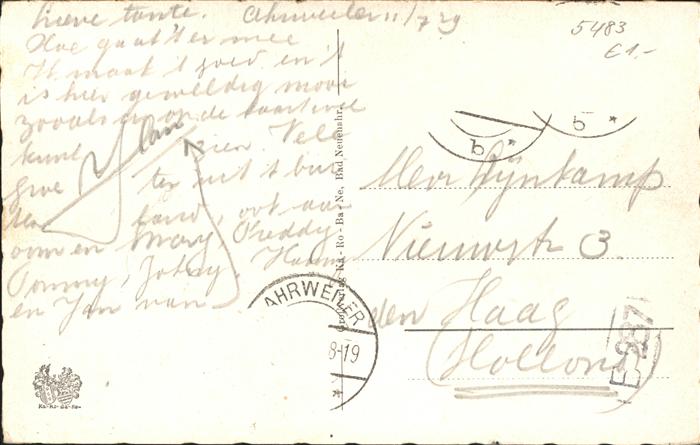 Lieve tante. Ahrweiler 11/7 29
Hoe gaat 't er mee
Ik maak 't goed en 't
is hier geweldig mooi
zooals u op de kaart wel
kunt zien. Vele
groe ten uit 't bui
ten land, ook aan
oom en Mary, Freddy
Tommy, Johny, Hanny
en Jan van
Jan
5483
€1.-
Mevr Dijnkamp
Nieuwstr 3
den Haag
Holland
AHRWEILER
8-19
b *
b *
E 287
Ka-Ro-Ba-Ne, Bad Neuenahr.
Ka-Ro-Ba-Ne